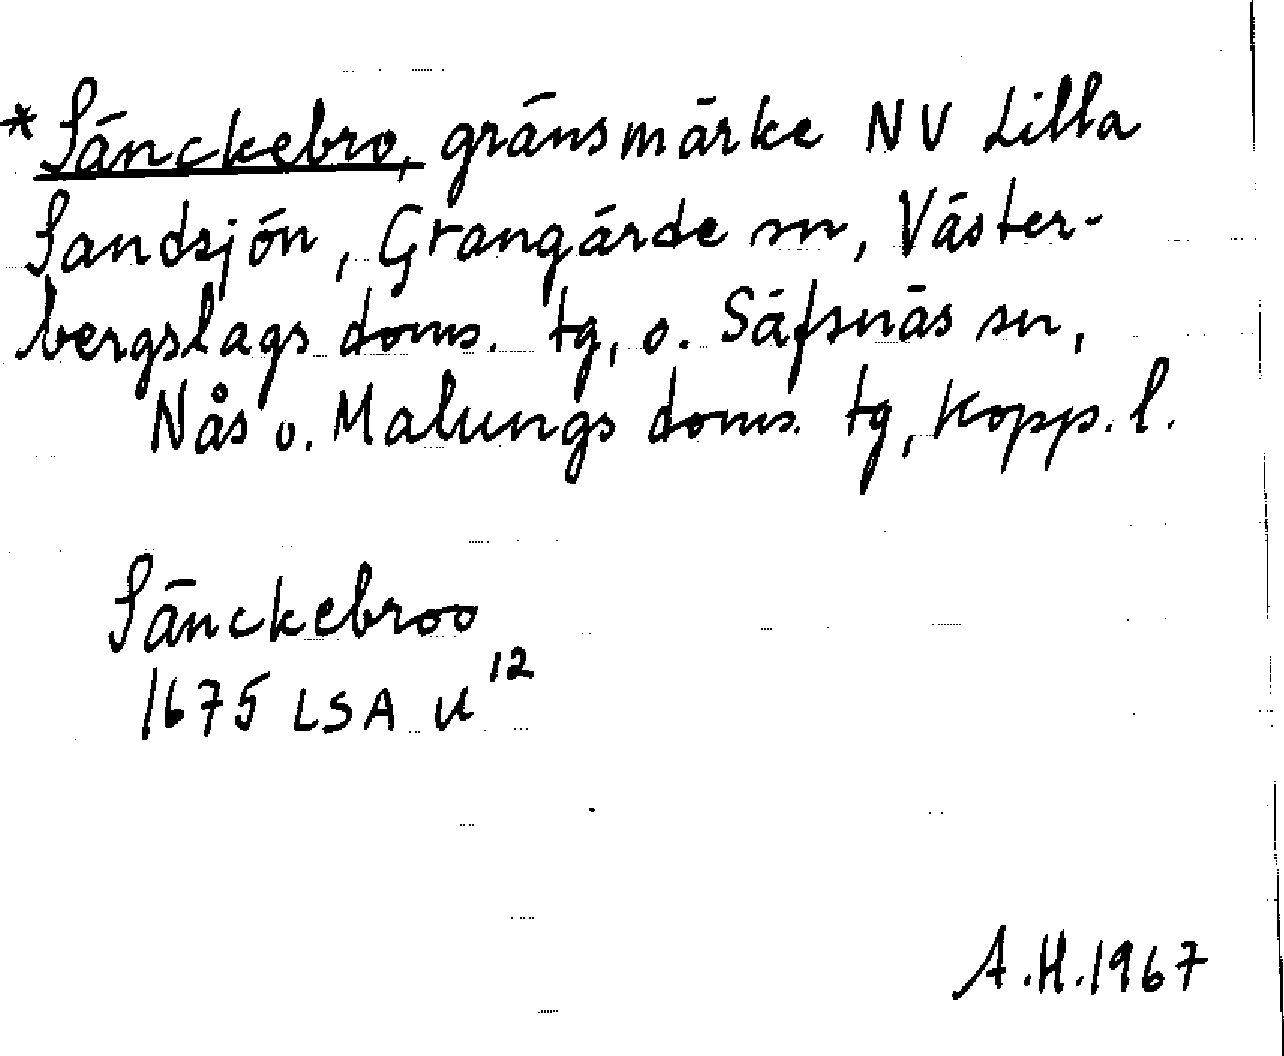 *Sänckebro, gränsmärke NV Lilla
Sandsjön, Grangärde sn, Väster-
bergslags doms. tg, o. Säfsnäs sn,
Nås o. Malungs doms. tg, Kopp. l.
Sänckebroo
1675 LSA U 12
A.H. 1967